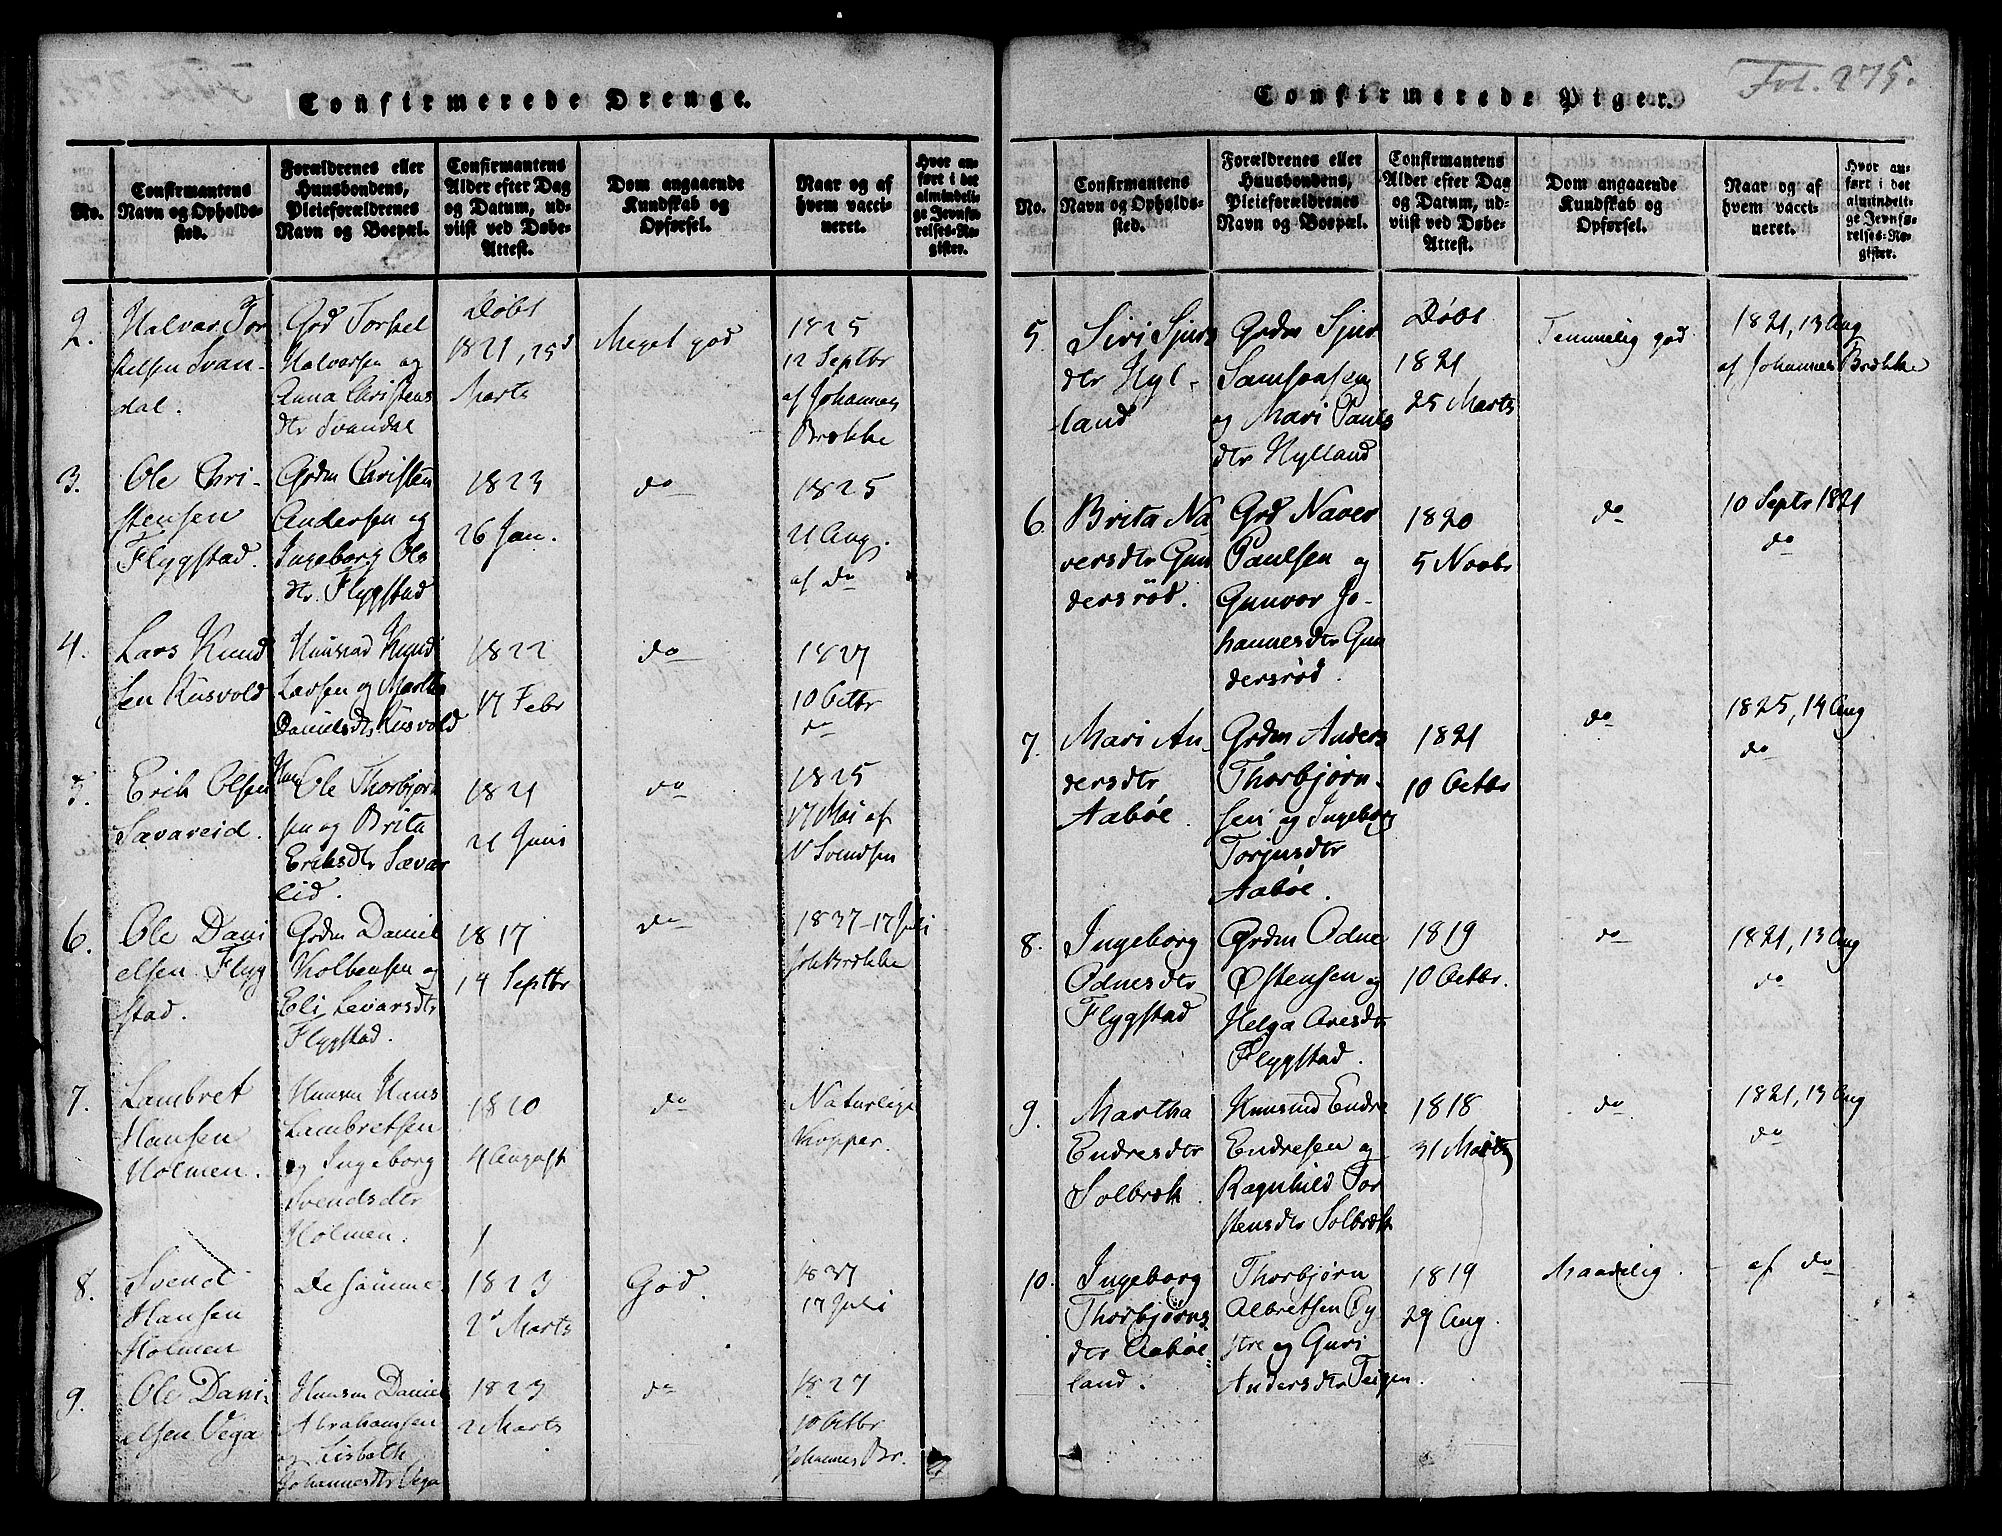 Confirmerede Drenge.
No.
Confirmantens
Navn og Opholds-
sted.
Forældrenes eller
Huusbondens,
Pleieforældrenes
Navn og Boepæl.
Confirmantens
Alder efter Dag
og Datum, ud-
viist ved Døbe-
Attest.
Dom angaaende
Kundskab og
Opførsel.
Naar og af
hvem vacci-
neret.
Hvor an-
ført i det
almindeli-
ge Jevnfø-
relses-Re-
gister.
2.
Halvar Tor
kelsen Svan-
dal.
Grd Torkel
Halvorsen og
Anna Christens
dtr Svandal
Døbt
1821, 25d
Marts
Meget god
1825
12 Septbr
af Johannes
Brække
3.
Ole Chri-
stensen
Flygstad.
Grdm Christen
Andersen og
Ingeborg Ols
dtr. Flygstad
1823
26 Jan.
do
1825
21 Aug.
af do
4.
Lars Knud
sen Risvold
Huusmd Knud
Larsen og Martha
Danielsdtr Risvold
1822
17 Febr
do
1827
10 Octbr
do
5.
Erik Olsen
Savareid.
Hmd Ole Thorbjørn
sen og Brita
Eriksdtr Sævar
eid.
1821
21 Juni
do
1825
17 Mai af
N Svendsen
6.
Ole Dani
elsen Flyg
stad.
Grdm Daniel
Kolbensen og
Eli Levarsdtr
Flygstad.
1817
14 Septbr
do
1837-17 Juli
Joh Brække
7.
Lambret
Hansen
Holmen.
Huusm Hans
Lambretsen
og Ingeborg
Svendsdtr
Holmen.
1820
4 August
do
Naturlige
Kopper.
8.
Svend
Hansen
Holmen
De samme.
1823
2d Marts
God.
1837
17 Juli
9.
Ole Dani-
elsen Vega
Huusm Daniel
Abrahamsen
og Lisbeth
Johannesdtr Vega
1823
2 Marts
do
1827
10 Octbr
Johannes Br.
Fol. 275.
Confirmerede Piger.
No.
Confirmantens
Navn og Opholds-
sted.
Forældrenes eller
Huusbondens,
Pleieforældrenes
Navn og Boepæl.
Confirmantens
Alder efter Dag
og Datum, ud-
viist ved Døbe-
Attest.
Dom angaaende
Kundskab og
Opførsel.
Naar og af
hvem vacci-
neret.
Hvor an-
ført i det
almindeli-
ge Jevnfø-
relses-Re-
gister.
5
Siri Sjurs
dtr Hyl-
land
Grdm Sjur
Samsonsen
og Mari Pauls
dtr Hylland
Døbt
1821
25 Marts
Temmelig god
1821, 13 Aug
af Johannes Brække
6
Brita Na
versdtr Gun
dersrød.
Grd Naver
Paulsen og
Gunvor Jo-
hannesdtr Gun
dersrød.
1820
5 Novbr
do
10 Septr 1821
do
7.
Mari An-
dersdtr
Aabøe.
Grdm Anders
Thorbjørn-
sen og Ingeborg
Torjusdtr
Aabøe.
1821
10 Octbr
do
1825, 14 Aug
do
8.
Ingeborg
Odnesdtr
Flygstad
Grdm Odne
Østensen og
Helga Aresdtr
Flygstad.
1819
10 Octbr.
do
1821, 13 Aug
do
9.
Martha
Endresdtr
Solbræk.
Huusmd Endre
Endresen og
Ragnhild Tor
stensdtr Solbræk
1818
31 Marts
do
1821, 13 Aug
do
10.
Ingeborg
Thorbjørns
dtr Aabøe-
land.
Thorbjørn
Albretsen By
stre og Guri
Andersdtr Teigen.
1819
29 Aug.
Maadelig.
af do